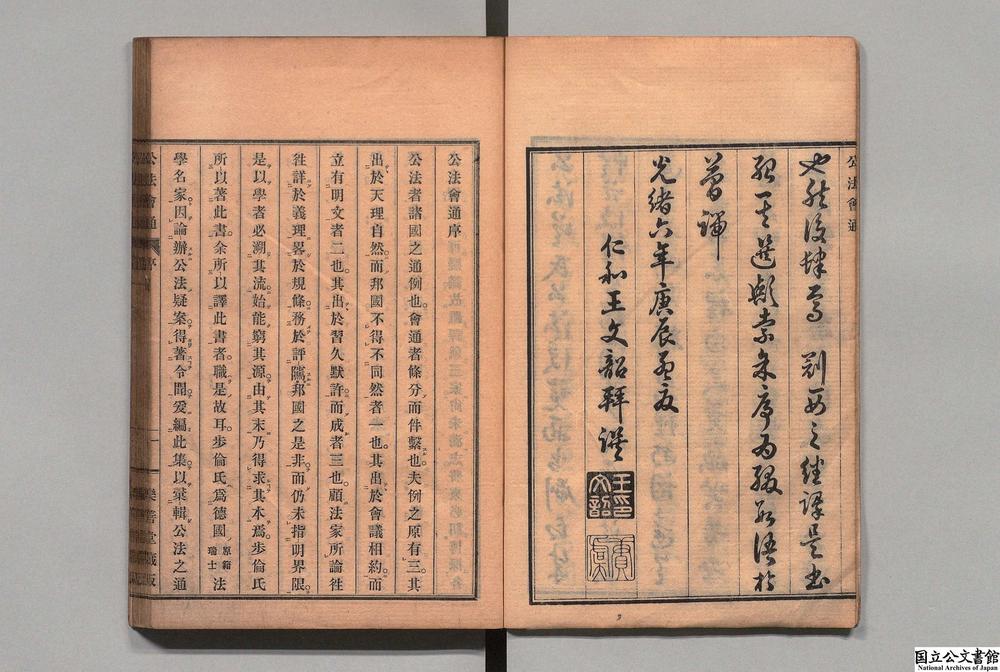 公法會通
譯是書
余序為綴數語於
光緒六年庚辰孟夏
仁和王文韶拜譔
公法會通序
公法者諸國之通例也。會通者條分而件繫也。夫例之原有三。其
出於天理自然。而邦國不得不同然者一也。其出於會議相約。而
立有明文者二也。其出於習久默許。而成者三也。顧法家所論往
徃詳於義理畧於規條。務於評隲邦國之是非。而仍未指明界限。
是以學者必溯其流。始能窮其源。由其末乃得求其本。爲步倫氏
所以著此書。余所以譯此書者。職是故耳。步倫氏爲德國原籍瑞士法
學名家。因論辦公法疑案。得著令聞。爰編此集。以彚輯公法之通
公法會通 序 一 樂善堂藏版
国立公文書館
National Archives of Japan